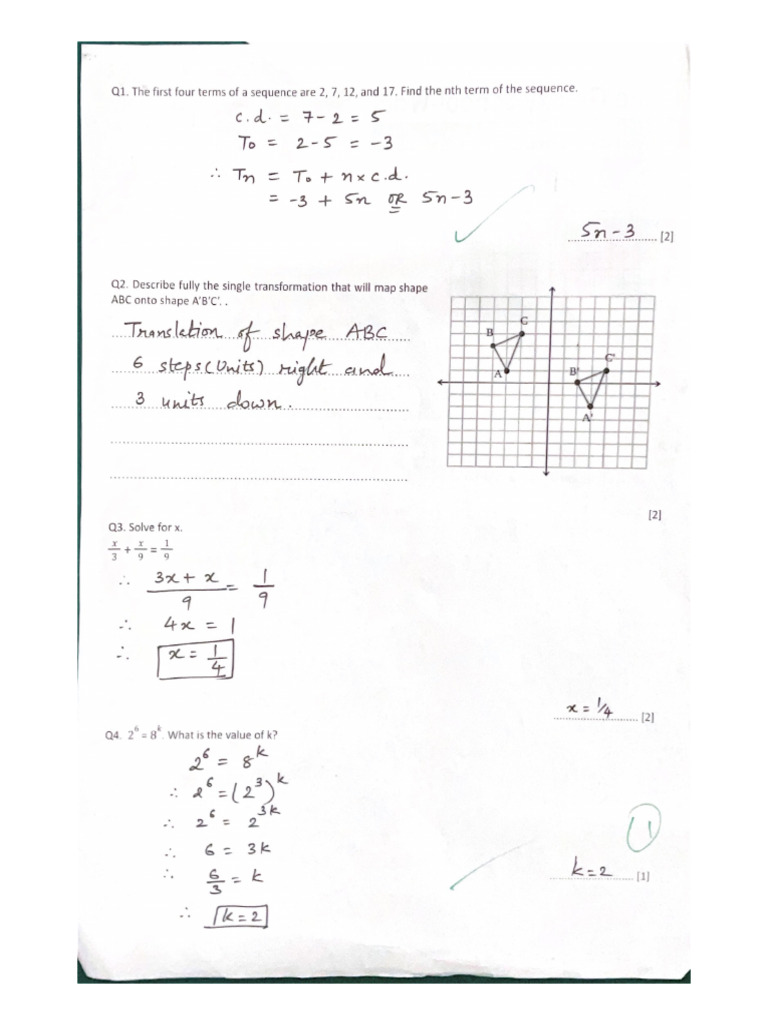 Q1. The first four terms of a sequence are 2, 7, 12, and 17. Find the nth term of the sequence.
c.d. = 7 - 2 = 5
T₀ = 2 - 5 = -3
∴ Tn = T₀ + n x c.d.
= -3 + 5n OR 5n - 3
5n - 3 [2]
Q2. Describe fully the single transformation that will map shape
ABC onto shape A'B'C'. .
Translation of shape ABC
6 steps (Units) right and
3 units down.
C
B
A
C'
B'
A'
[2]
Q3. Solve for x.
x/3 + x/9 = 1/9
∴ (3x + x)/9 = 1/9
∴ 4x = 1
∴ x = 1/4
x = 1/4 [2]
Q4. 2⁶ = 8ᵏ. What is the value of k?
2⁶ = 8ᵏ
∴ 2⁶ = (2³)ᵏ
∴ 2⁶ = 2³ᵏ
∴ 6 = 3k
∴ 6/3 = k
∴ k = 2
k = 2 [1]